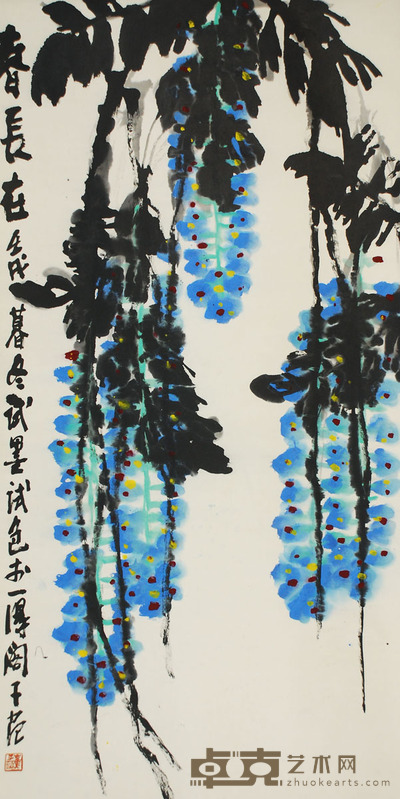 春长在 壬戌暮冬试墨试色于一得阁 子庄
卓克艺术网
www.zhuokearts.com